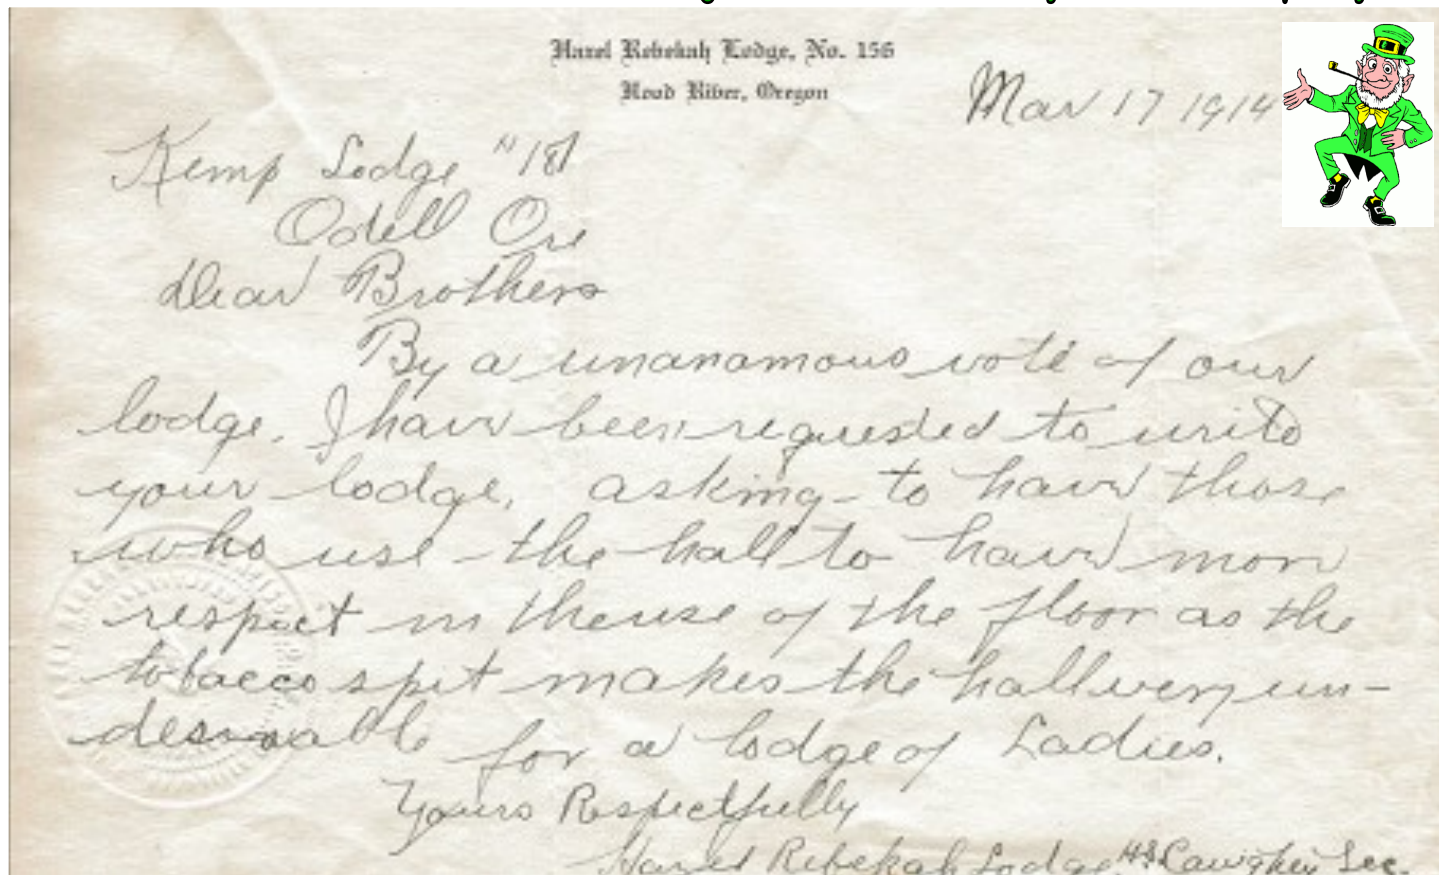 Hazel Rebekah Lodge, No. 156
Hood River, Oregon
Mar 17 1914
Kemp Lodge # 181
Odell Ore
Dear Brothers
By a unanamous vote of our
lodge. I have been requested to write
your lodge, asking to have those
who use the hall to have more
respect in the use of the floor as the
tobacco spit makes the hall very un-
desirable for a lodge of Ladies.
Yours Respectfully
Hazel Rebekah Lodge Sec.